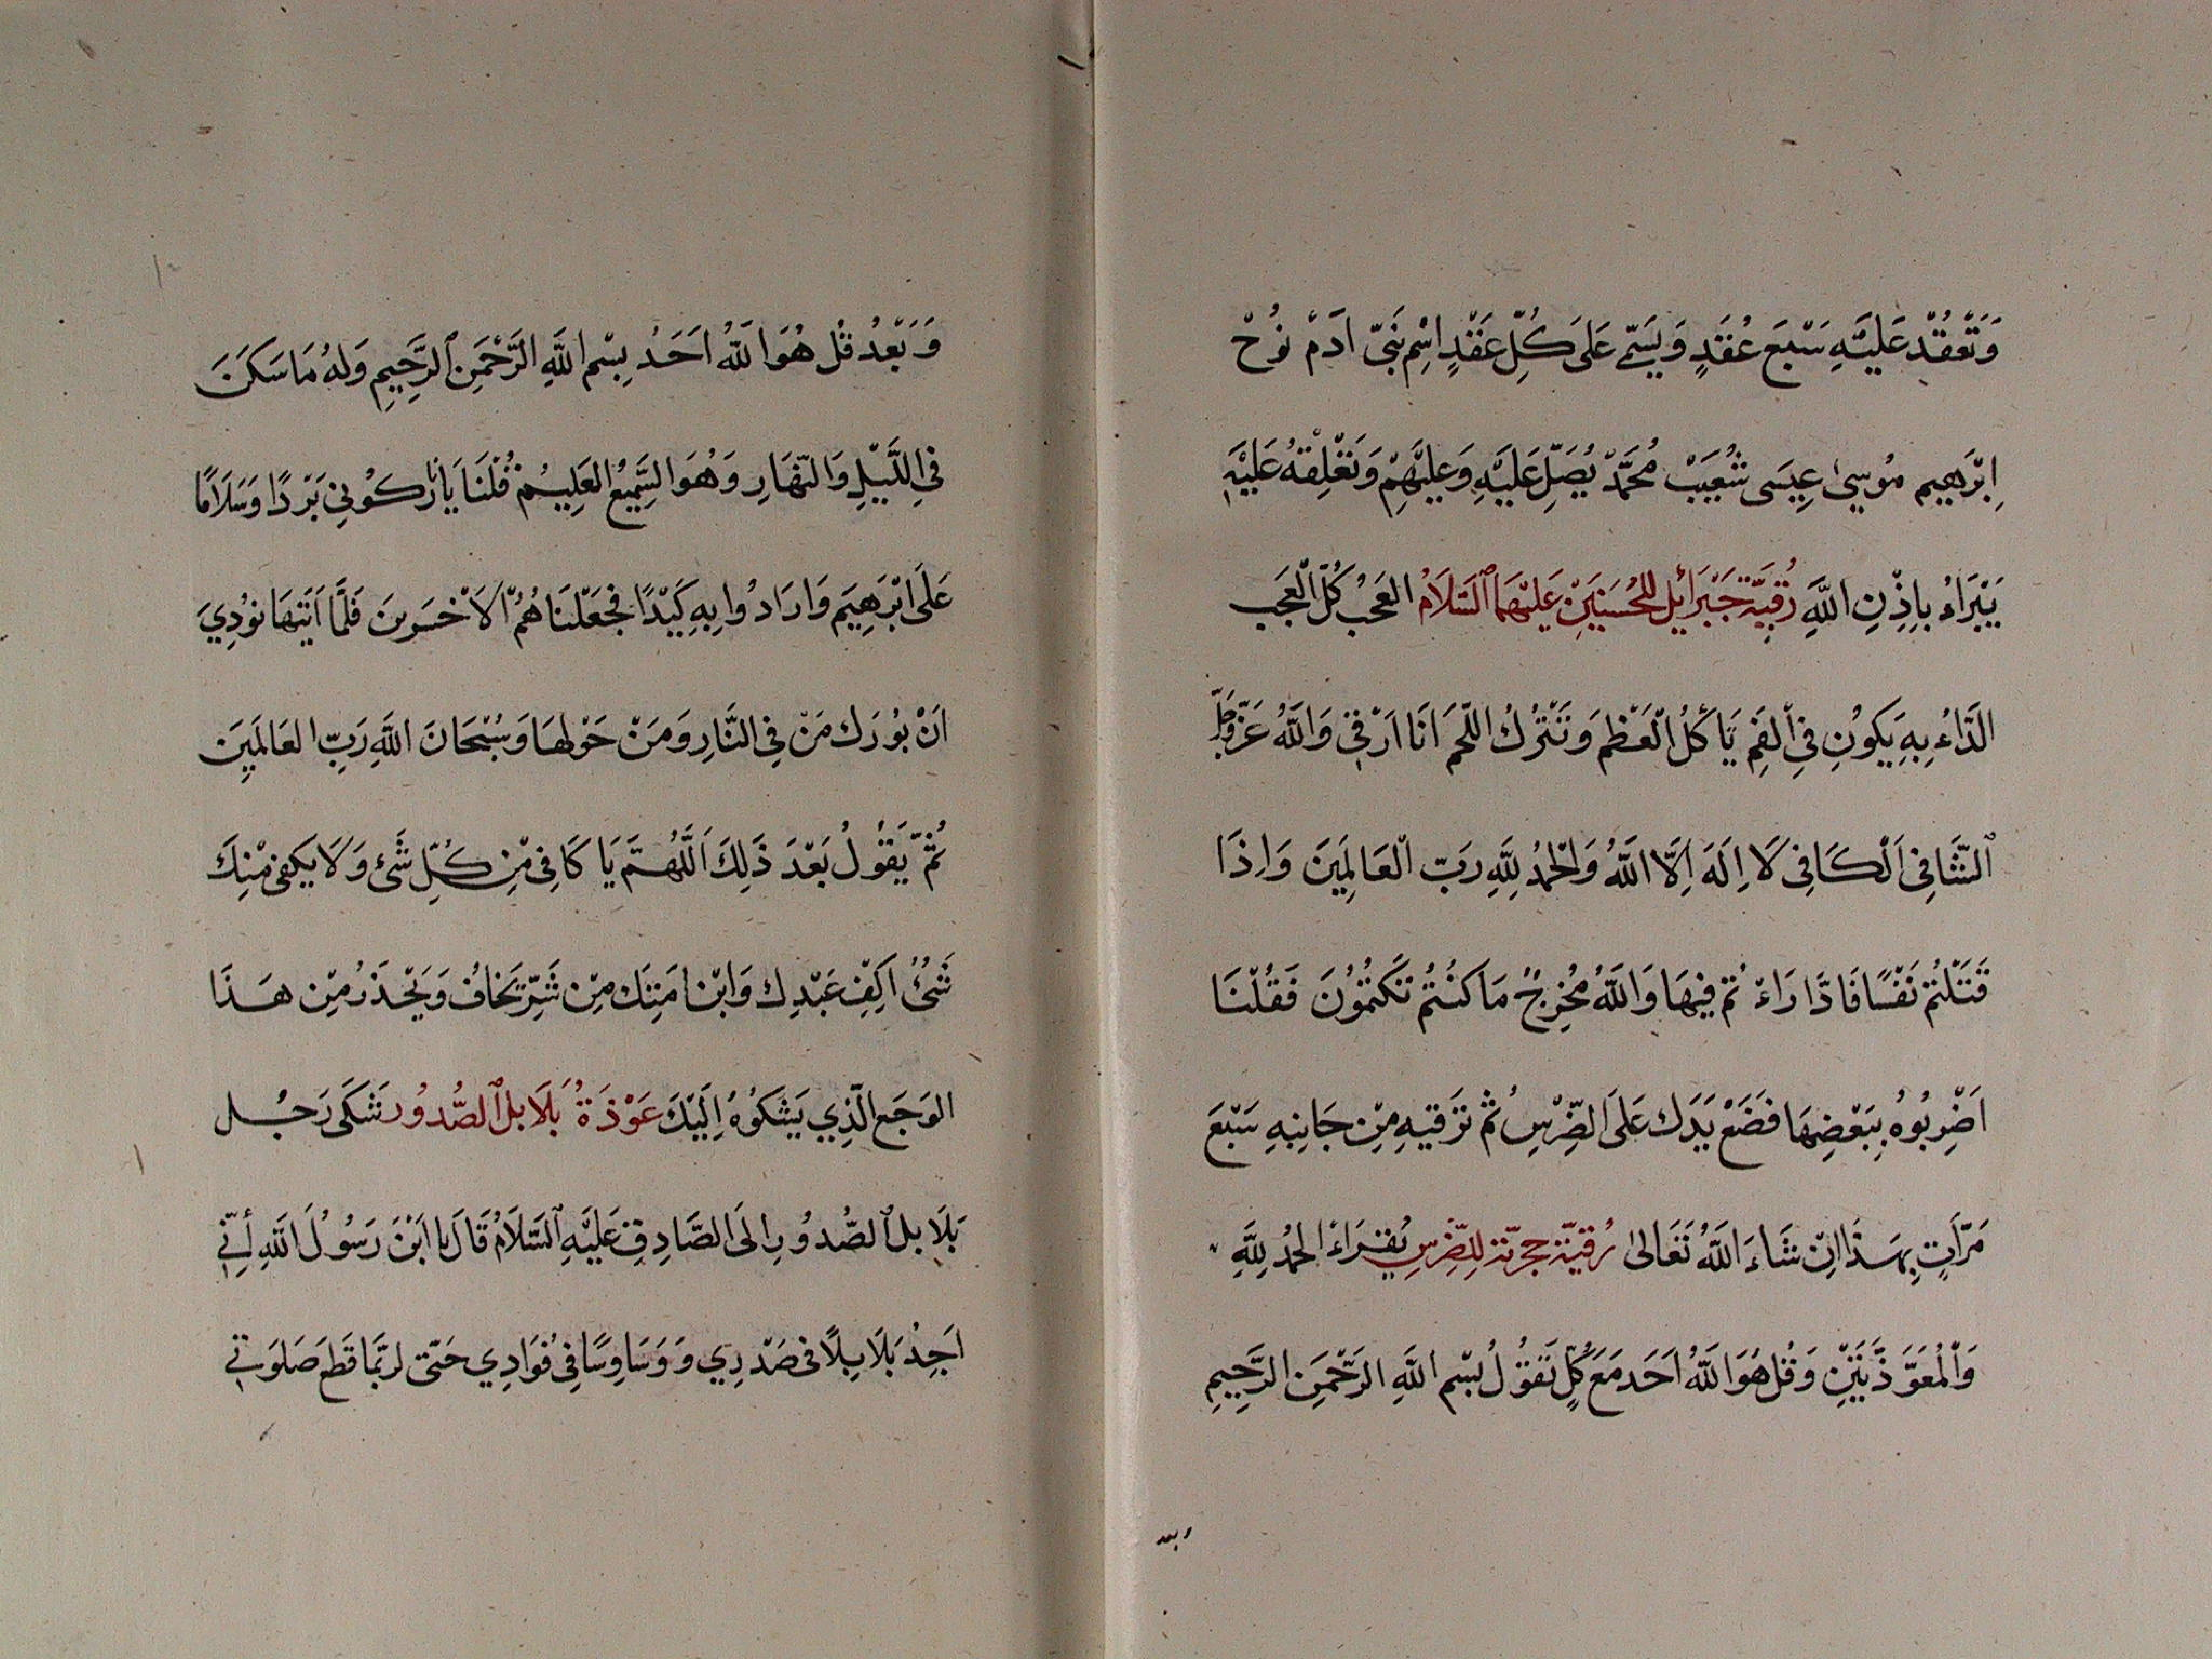 وَتَعْقُدْ عَلَيْهِ سَبْعَ عُقَدٍ وَيُسَمّي عَلَى كُلِّ عَقْدٍ اِسْمِ نَبِيّ ادَمْ نُوُحْ
اِبْرَهِيم مُوسىٰ عِيسَى شُعَيَبْ مُحَمَّدْ يُصَلّ عَلَيْهِ وَعَلَيْهِمْ وَتَعْلِقهُ عَلَيْهِ
يَبْرَاءُ بِاِذْنِ اللَّهِ رُقيَة جَبْرَائِل للحُسَنَيَنْ عَلَيْهَما اَلسَّلَامُ العَجبُ كُلّ اْلعَجَب
الَدّاءُ بِهِ يَكوُنِ فيِ اْلفَمِ يَأكُلُ الْعَظْمَ وَتَتْرُكُ اللّحمَ اَنَا اَرْقي وَاللَّهُ عَزَّوجَلّ
اَلشَّافِى اَلْكَافِى لَا اِلَهَ اِلَّا اللَّهُ وَالْحَمْدُ لِلَّهِ رَبّ الْعَالَمِيَنَ وَاِذَا
قَتَلْتُمْ نَفْسًا فَادَّارَاءْ تُم فيِهَا وَاللَّهُ مُخْرِجٌ مَا كنْتُمْ تَكتُمُوُنَ فَقُلْنَا
اَضْرِبُوُهُ بِبَعْضِهَا فَضَعْ يَدَك عَلَى الضِّرْسُ ثُم تَرَقيهِ مِنْ جَانِبِهِ سَبْعَ
مَرّاَتٍ بِهَذَا اِنْ شَاءَ اللَّهُ تَعَالىٰ رُقيَة جرّبة لِلضِّرسِ يُقرَاءُ الْحَمْدُ لِلَّهِ
وَاْلمُعَوَّذَّتَيَنِْ وَقُل هُوَاللَّهُ اَحَد مَعَ كُلٍ تَقوُلُ بسْم اللَّهِ الرَحّمَنِ الرَّحِيمِ
وبعد
وَبَعْدُ قُل هُوَاللّهُ اَحَدُ بِسْم اللَّهِ الرَّحْمَنِ اَلرَّحِيمِ وَلَهُ مَا سَكَنَ
فيِ اللَّيْلِ وَالنّهَارِ وَهُوَ السَّمِيعُ العَلِيُم قُلْنَا يَانَارُ كُوُنيِ بَرْدًا وَسَلَامًا
عَلَى ابْرَهِيَم وَارَادُوا بِهِ كَيْدًا فَجَعَلْنَاهُمُ اْلاَخْسَرينَ فَلَمَّا اَتَيَهَا نوُدِيَ
اَنْ بُورَك مَنْ فيِ النَّارِ وَمَنْ حَوْلَهَا وَسُبْحَانَ اللَّهِ رَبِّ العَالَمِيَن
ثُمّ يَقوُلُ بَعْدَ ذَلِكَ اَللَّهُمَّ يَا كَافِى مِّنِ كُلِّ شَئ وَلَا يَكفى مْنِكَ
شَئُ اَكِفْ عَبْدِك وَابْن اَمَتِك مِنْ شَرِّ يَخَافُ وَيَحْذَرُ مِنْ هَذَا
الوَجَع الَّذِي يَشكُوُهُ اِلَيْكَ عَوْذَةُ بَلَابل اَلصُّدوُر شَكَى رَجُل
بَلَابِل اَلصُّدوُر اِلَى الصَّادِقْ عَلَيْهِ اَلسَّلَامُ قَالَ يا ابْنَ رَسُوُلَ اللَّهِ أنِّي
اَجِدُ بَلَابِلًا فى صَدْرِي وَوَسَاوِسًا فيِ فُوَادِي حَتّى لرُبّمَا قَطَعَ صَلوَتي